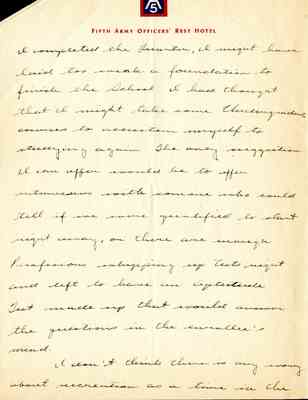 5
FIFTH ARMY OFFICERS' REST HOTEL
I completed the          , I might have
laid too weak a foundation to
finish the School. I had thought
that I might take some Undergraduate
courses to accustom myself to
studying again. The only suggestion
I can offer would be to offer
interviews with someone who could
tell if we were qualified to start
right away, or there are enough
Professors whipping up Tests right
and left to have an aptitude
Test made up that would answer
the questions in the enrollee's
mind.
I don't think there is any worry
about recreation as a time in the